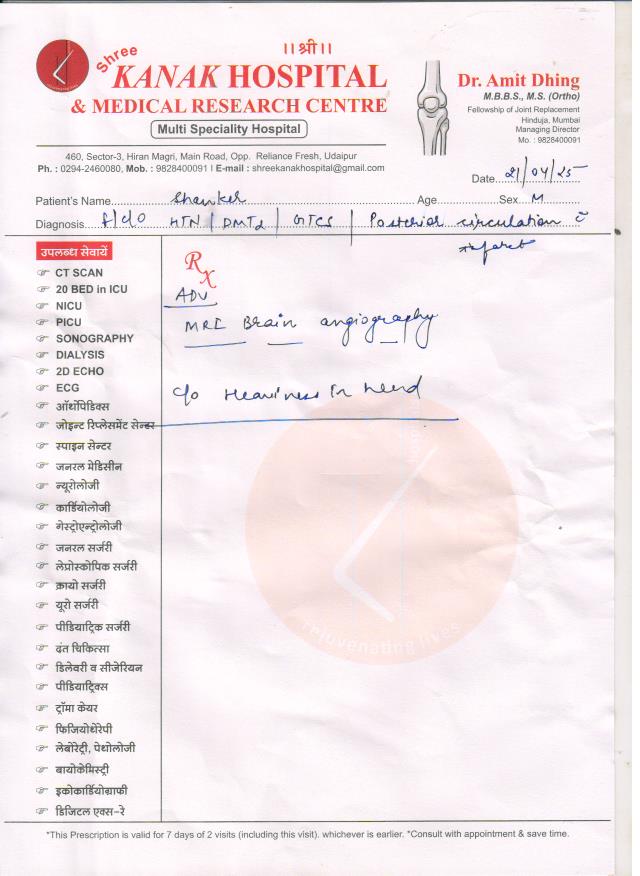 ।। श्री ।।
Shree
KANAK HOSPITAL
& MEDICAL RESEARCH CENTRE
Multi Speciality Hospital
460, Sector-3, Hiran Magri, Main Road, Opp. Reliance Fresh, Udaipur
Ph. : 0294-2460080, Mob. : 9828400091 | E-mail : shreekanakhospital@gmail.com
Dr. Amit Dhing
M.B.B.S., M.S. (Ortho)
Fellowship of Joint Replacement
Hinduja, Mumbai
Managing Director
Mo. : 9828400091
Date 21/04/25
Patient's Name Shanker Age Sex M
Diagnosis f/c/o HTN / DMT2 / GTCS / Posterior circulation c̄
infarct
उपलब्ध सेवायें
CT SCAN
20 BED in ICU
NICU
PICU
SONOGRAPHY
DIALYSIS
2D ECHO
ECG
ऑर्थोपिडिक्स
जोइन्ट रिप्लेसमेंट सेन्टर
स्पाइन सेन्टर
जनरल मेडिसीन
न्यूरोलोजी
कार्डियोलोजी
गेस्ट्रोएन्ट्रोलोजी
जनरल सर्जरी
लेप्रोस्कोपिक सर्जरी
क्रायो सर्जरी
यूरो सर्जरी
पीडियाट्रिक सर्जरी
दंत चिकित्सा
डिलेवरी व सीजेरियन
पीडियाट्रिक्स
ट्रॉमा केयर
फिजियोथेरेपी
लेबोरेट्री, पेथोलोजी
बायोकेमिस्ट्री
इकोकार्डियोग्राफी
डिजिटल एक्स-रे
Rx
ADV
MRI Brain angiography
c/o Heaviness in head
rejuvenating lives
*This Prescription is valid for 7 days of 2 visits (including this visit). whichever is earlier. *Consult with appointment & save time.